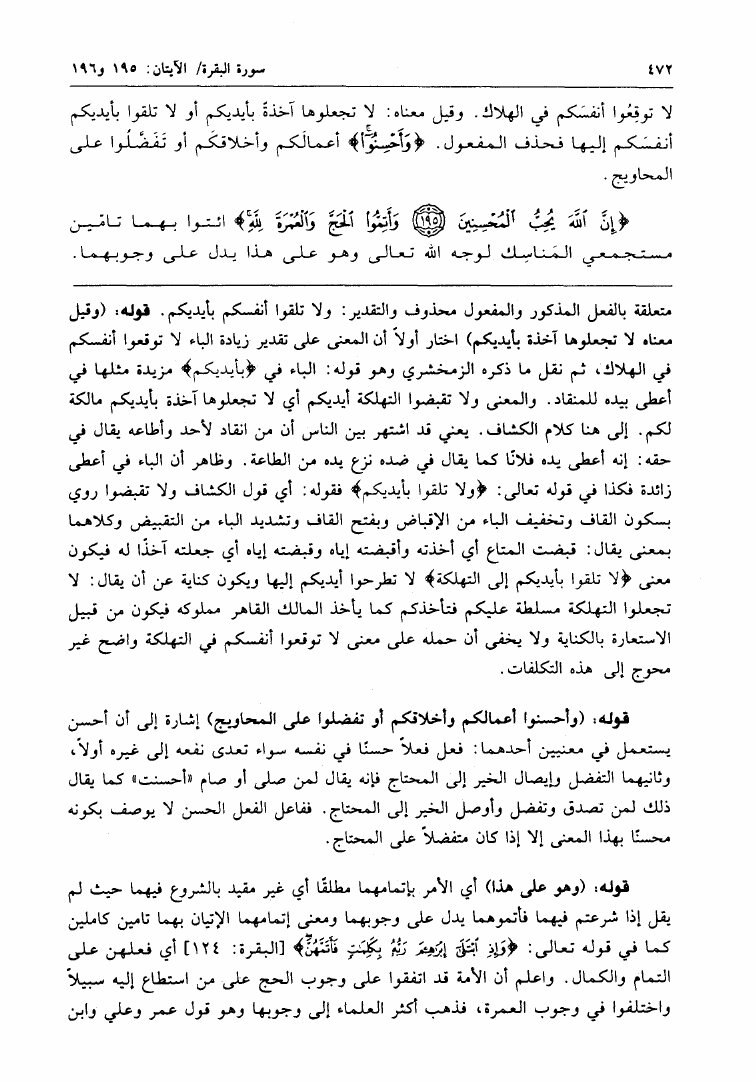 ٤٧٢
سورة البقرة/ الآيتان: ١٩٥ و١٩٦
لا توقِعُوا أنفسَكم في الهلاك. وقيل معناه: لا تجعلوها آخذةً بأيديكم أو لا تلقوا بأيديكم
أنفسَكم إليها فحذف المفعول. ﴿وَأَحْسِنُوٓاْۚ﴾ أعمالَكم وأخلاقكَم أو تَفَضَّلُوا على
المحاويج.
﴿إِنَّ ٱللَّهَ يُحِبُّ ٱلْمُحْسِنِينَ ﴿١٩٥﴾ وَأَتِمُّواْ ٱلْحَجَّ وَٱلْعُمْرَةَ لِلَّهِۚ﴾ ائتوا بهما تامّين
مستجمعي المَناسِك لوجه الله تعالى وهو على هذا يدل على وجوبهما.
متعلقة بالفعل المذكور والمفعول محذوف والتقدير: ولا تلقوا أنفسكم بأيديكم. قوله: (وقيل
معناه لا تجعلوها آخذة بأيديكم) اختار أولاً أن المعنى على تقدير زيادة الباء لا توقعوا أنفسكم
في الهلاك، ثم نقل ما ذكره الزمخشري وهو قوله: الباء في ﴿بأيديكم﴾ مزيدة مثلها في
أعطى بيده للمنقاد. والمعنى ولا تقبضوا التهلكة أيديكم أي لا تجعلوها آخذة بأيديكم مالكة
لكم. إلى هنا كلام الكشاف. يعني قد اشتهر بين الناس أن من انقاد لأحد وأطاعه يقال في
حقه: إنه أعطى يده فلانًا كما يقال في ضده نزع يده من الطاعة. وظاهر أن الباء في أعطى
زائدة فكذا في قوله تعالى: ﴿ولا تلقوا بأيديكم﴾ فقوله: أي قول الكشاف ولا تقبضوا روي
بسكون القاف وتخفيف الباء من الإقباض وبفتح القاف وتشديد الباء من التقبيض وكلاهما
بمعنى يقال: قبضت المتاع أي أخذته وأقبضته إياه وقبضته إياه أي جعلته آخذًا له فيكون
معنى ﴿لا تلقوا بأيديكم إلى التهلكة﴾ لا تطرحوا أيديكم إليها ويكون كناية عن أن يقال: لا
تجعلوا التهلكة مسلطة عليكم فتأخذكم كما يأخذ المالك القاهر مملوكه فيكون من قبيل
الاستعارة بالكناية ولا يخفى أن حمله على معنى لا توقعوا أنفسكم في التهلكة واضح غير
محوج إلى هذه التكلفات.
قوله: (وأحسنوا أعمالكم وأخلاقكم أو تفضلوا على المحاويج) إشارة إلى أن أحسن
يستعمل في معنيين أحدهما: فعل فعلاً حسنًا في نفسه سواء تعدى نفعه إلى غيره أولاً،
وثانيهما التفضل وإيصال الخير إلى المحتاج فإنه يقال لمن صلى أو صام «أحسنت» كما يقال
ذلك لمن تصدق وتفضل وأوصل الخير إلى المحتاج. ففاعل الفعل الحسن لا يوصف بكونه
محسنًا بهذا المعنى إلا إذا كان متفضلاً على المحتاج.
قوله: (وهو على هذا) أي الأمر بإتمامهما مطلقًا أي غير مقيد بالشروع فيهما حيث لم
يقل إذا شرعتم فيهما فأتموهما يدل على وجوبهما ومعنى إتمامهما الإتيان بهما تامين كاملين
كما في قوله تعالى: ﴿وَإِذِ ٱبْتَلَىٰٓ إِبْرَٰهِـۧمَ رَبُّهُۥ بِكَلِمَٰتٍ فَأَتَمَّهُنَّۖ﴾ [البقرة: ١٢٤] أي فعلهن على
التمام والكمال. واعلم أن الأمة قد اتفقوا على وجوب الحج على من استطاع إليه سبيلاً
واختلفوا في وجوب العمرة، فذهب أكثر العلماء إلى وجوبها وهو قول عمر وعلي وابن